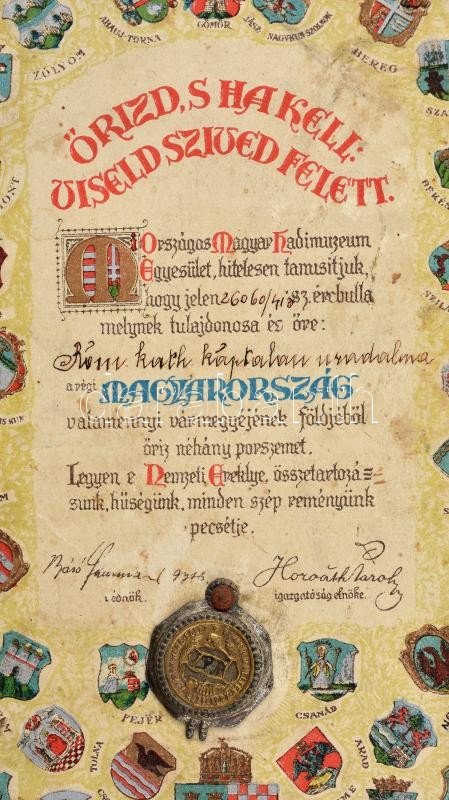 ABAUJ-TORNA
GÖMÖR
JÁSZ-NAGYKUN-SZOLNOK
ZÓLYOM
BEREG
ŐRIZD, S HA KELL:
VISELD SZIVED FELETT.
Mi Országos Magyar Hadimuzeum
Egyesület, hitelesen tanusitjuk,
hogy jelen 26060/418 sz. ércbulla
melynek tulajdonosa és őre:
Róm. kath. káptalan uradalma
a régi MAGYARORSZÁG
valamennyi vármegyéjének földjéből
őriz néhány porszemet.
Legyen e Nemzeti Ereklye, összetartozá=
sunk, hűségünk, minden szép reményünk
pecsétje.
Báró
Horváth Károly
védnök.
igazgatóság elnöke.
FEJÉR
CSANÁD
TOLNA